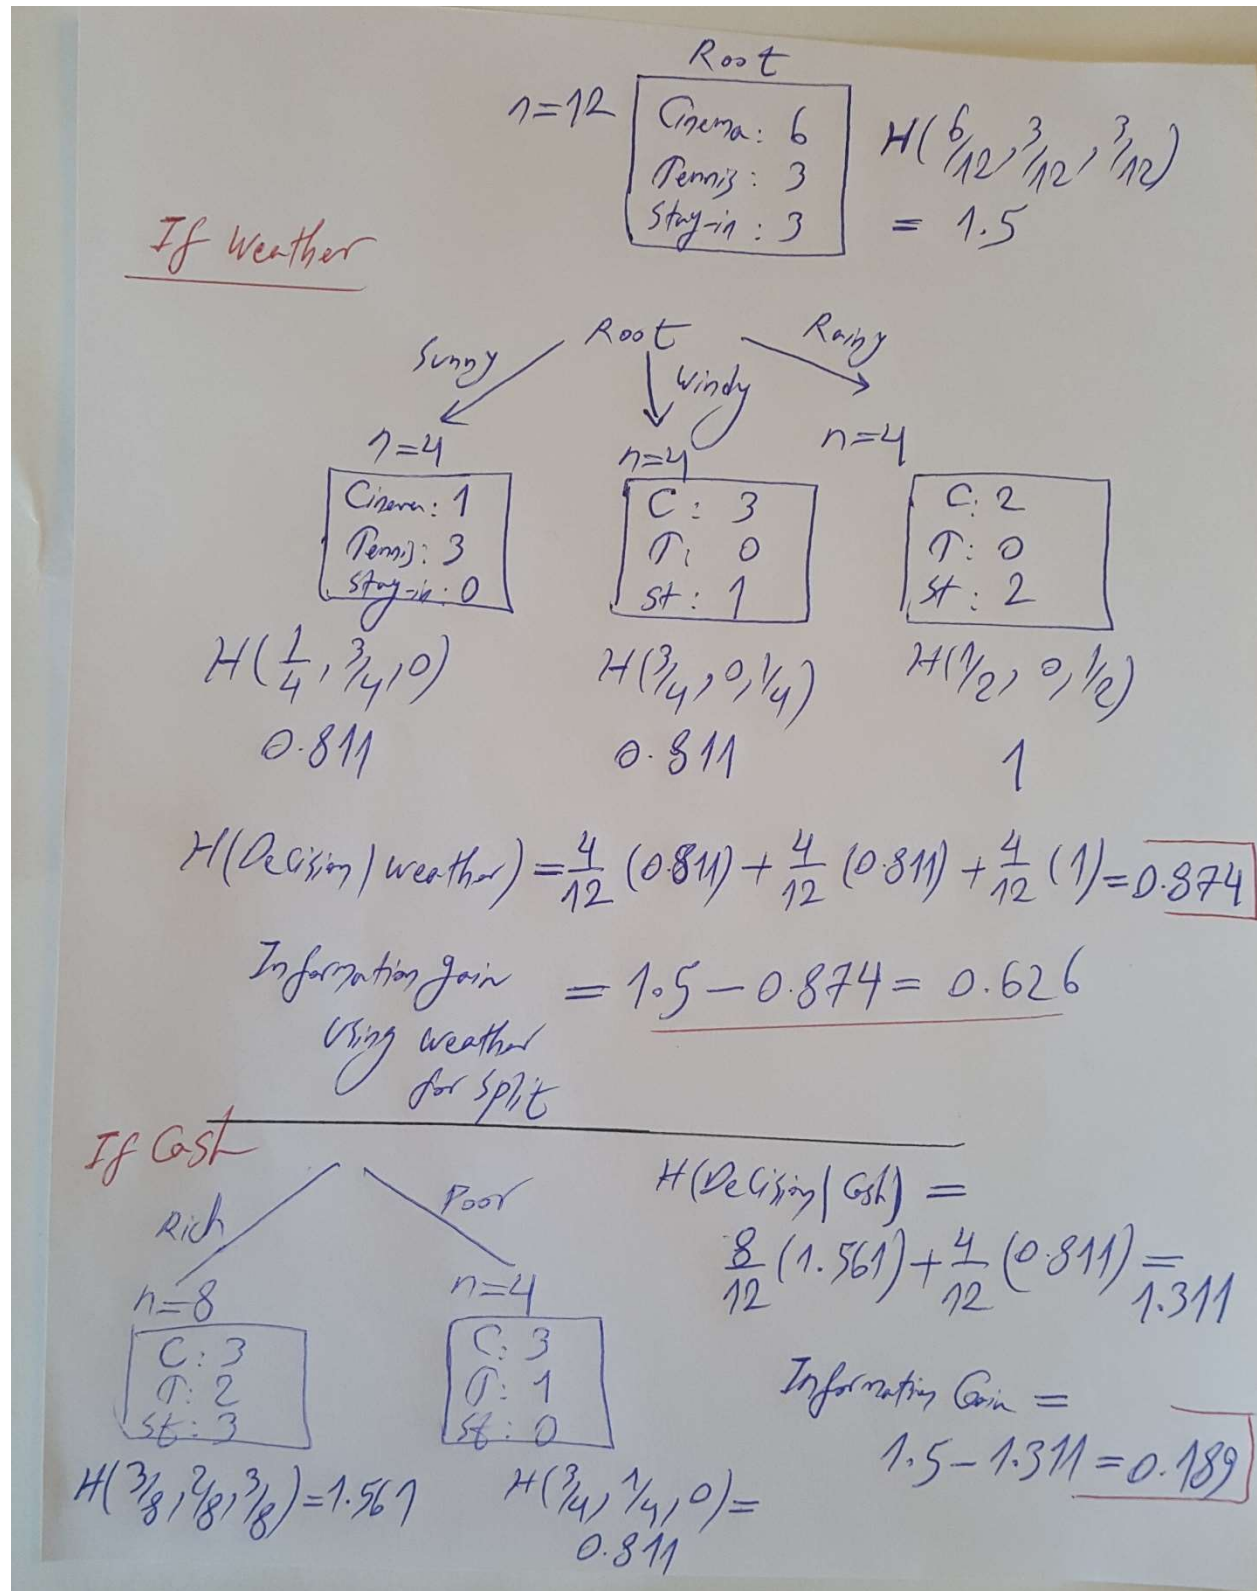 Root
n=12
Cinema: 6
Tennis: 3
Stay-in: 3
H(6/12, 3/12, 3/12)
= 1.5
If Weather
Root
Sunny
Windy
Rainy
n=4
Cinema: 1
Tennis: 3
Stay-in: 0
H(1/4, 3/4, 0)
0.811
n=4
C: 3
T: 0
St: 1
H(3/4, 0, 1/4)
0.811
n=4
C: 2
T: 0
St: 2
H(1/2, 0, 1/2)
1
H(Decision | weather) = 4/12 (0.811) + 4/12 (0.811) + 4/12 (1) = 0.874
Information gain = 1.5 - 0.874 = 0.626
using weather
for split
If Cash
Rich
Poor
n=8
C: 3
T: 2
St: 3
H(3/8, 2/8, 3/8) = 1.561
n=4
C: 3
T: 1
St: 0
H(3/4, 1/4, 0) =
0.811
H(Decision | Cash) =
8/12 (1.561) + 4/12 (0.811) =
1.311
Information Gain =
1.5 - 1.311 = 0.189